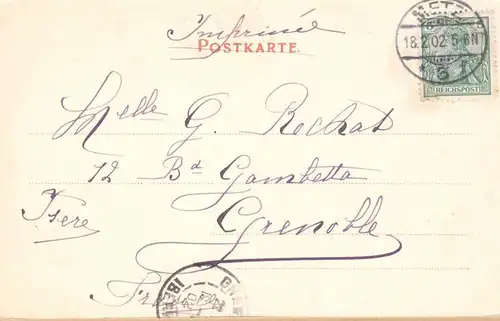 Imprimé
POSTKARTE.
METZ
18.2.02.5-6N
5
REICHSPOST
Melle G. Rochat
12 Bd Gambetta
Isere
Grenoble